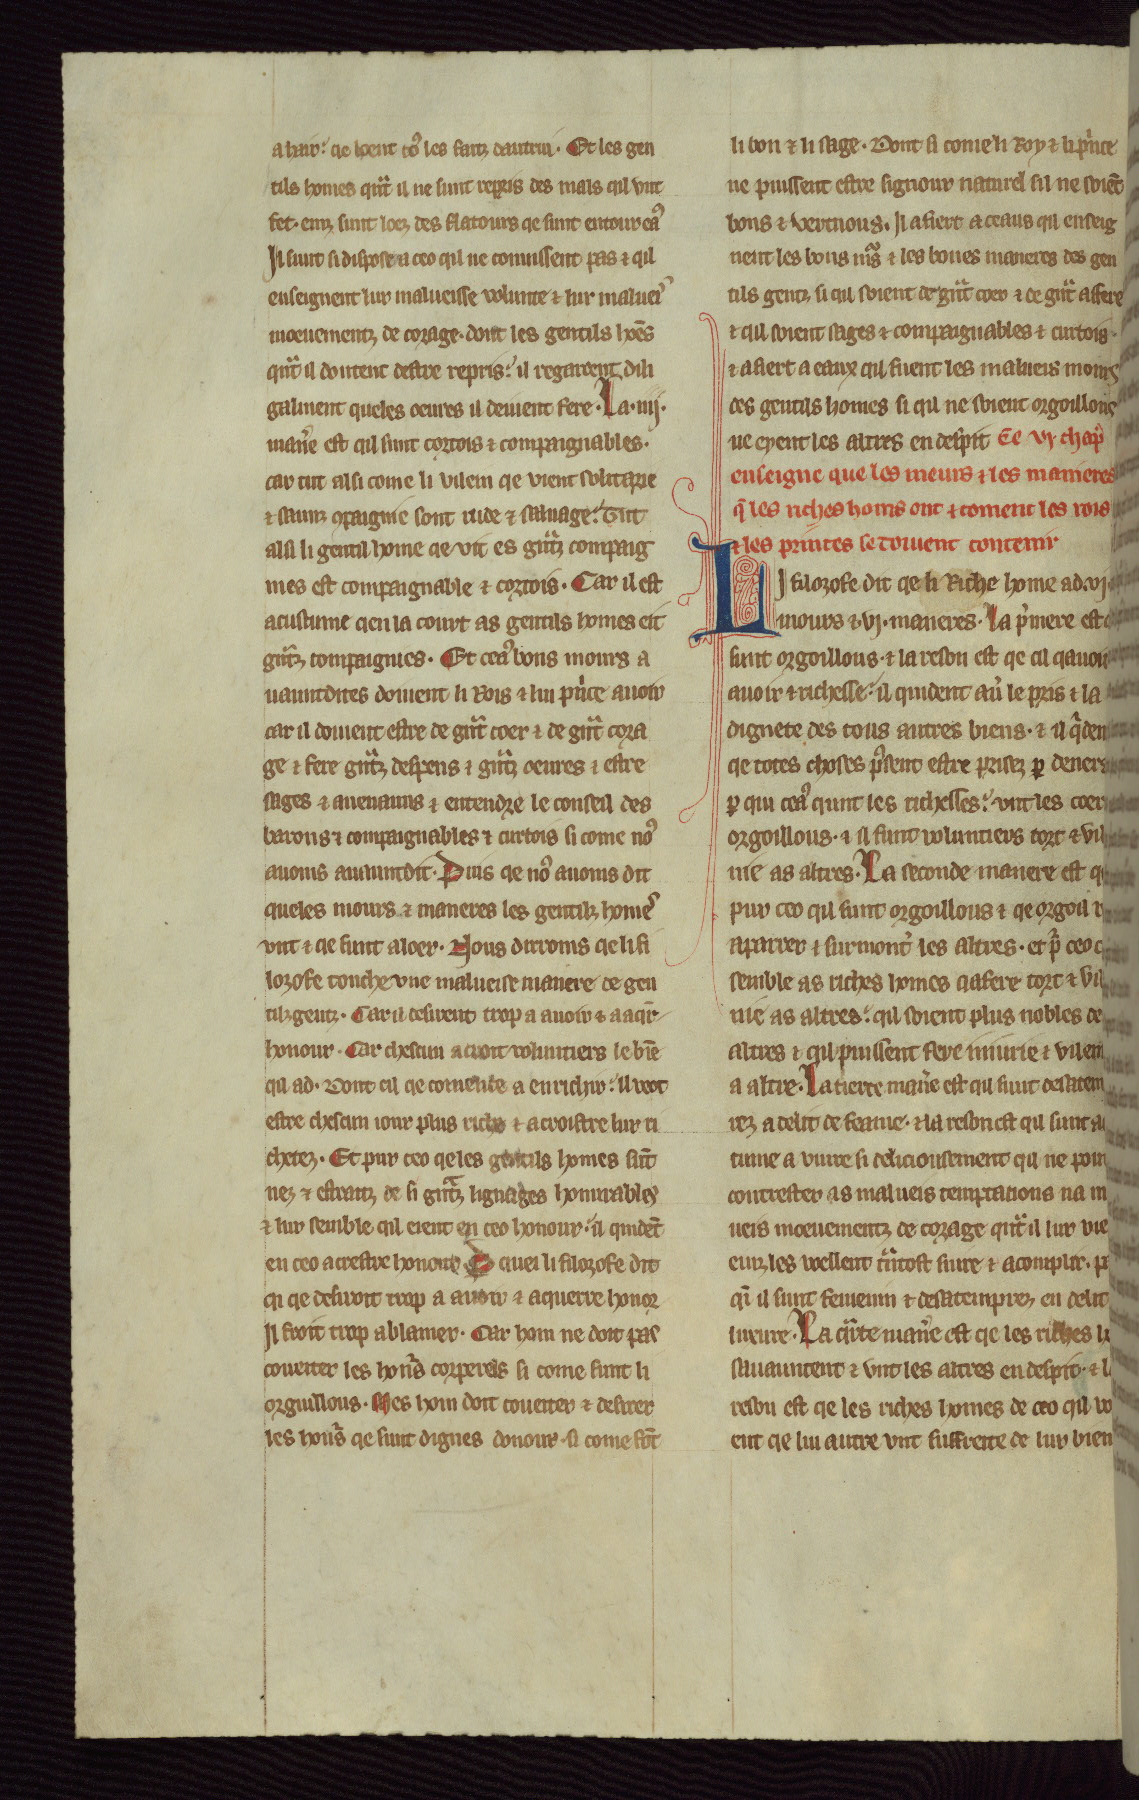 a hair: qe loent to9 les faitz dautrui. Et les gen
tils homes qnt il ne sunt repris des mals qil unt
fet. einz sunt loez des flatours qe sunt entour ea9
Il sunt si dispose a ceo qil ne conuissent pas ⁊ qil
enseignent lur malueisse volunte ⁊ lur maluei9
moeuementz de corage. dont les gentils hoes
qnt il doutent destre repris: il regardent dili
gialment queles oeures il deiuent fere. La .iiij.
mane est qil sunt cortois ⁊ compaignables.
car tut alsi come li vilein qe vient solitarie
⁊ saunz 9paignie sont rude ⁊ saluage: Tut
alsi li gentil home qe vit es gntz compaig
nies est compaignable ⁊ cortois. Car il est
acustume qen la court as gentils homes eit
gntz compaignies. Et cea9 bons mours a
uauntdites doiuent li Rois ⁊ lui pnce auoir
car il doiuent estre de gnt coer ⁊ de gnt cora
ge ⁊ fere gntz despens ⁊ gntz oeures ⁊ estre
sages ⁊ auenauns ⁊ entendre le conseil des
barons ⁊ compaignables ⁊ curtois si come no9
auoms auauntdit. Puis qe no9 auoms dit
queles mours ⁊ maneres les gentilz home9
unt ⁊ qe sunt a loer. Nous dirroms qe li fi
lozofe touche vne malueise maniere de gen
tilz gentz. Car il desirent trop a auoir ⁊ a aqr
honour. Car chescun acroit voluntiers le bie
qil ad. Dont cil qe comence a enrichir: il veot
estre chescun iour plus riche ⁊ acroistre lur ri
chetez. Et pur ceo qe les gentils homes sunt
nez ⁊ estraitz de si gntz lignages honurables
⁊ lur semble qil erent en ceo honour: il quident
en ceo acrestre honour. De quei li filozofe dit
qi qe desiroit trop a auoir ⁊ aquerre honor
Il froit trop a blamer. Car hom ne doit pas
coueiter les honurs corperels si come sunt li
orguillous. Mes hom doit coueiter ⁊ desirer
les honurs qe sunt dignes donour. si come sont
li bon ⁊ li sage. Dont si come li Roy ⁊ li pnce
ne puissent estre signour naturel sil ne soient
bons ⁊ vertuous. Il afiert a ceaus qil enseig
nent les bons murs ⁊ les bones maneres des gen
tils gentz si qil soient de gnt coer ⁊ de gnt affere
⁊ qil soient sages ⁊ compaignables ⁊ curtois.
⁊ afiert a eaux qil fuent les malueis mours
des gentils homes si qil ne soient orgoillous
ne eyent les altres en despit Ce vj chapr
enseigne que les meurs ⁊ les manieres
q les riches homs ont ⁊ coment les rois
⁊ les princes se doiuent contenir
LI filozofe dit qe li Riche home ad .vj.
mours ⁊ .vj. maneres. La pmere est q
sunt orgoillous. ⁊ la reson est qe cil qauon
auoir ⁊ richesse: il quident au le pris ⁊ la
dignete des tous autres biens. ⁊ il qden
qe totes choses psent estre prisez p deners
p qui cea9 qunt les richesses: unt les coer
orgoillous. ⁊ il funt voluntiers tort ⁊ vil
nie as altres. La seconde manere est q
pur ceo qil sunt orgoillous ⁊ qe orgoil v
aparrer ⁊ surmont les altres. et p ceo q
semble as riches homes qafere tort ⁊ vil
nie as altres: qil soient plus nobles de
altres ⁊ qil puissent fere iniurie ⁊ vilen
a altre. La tierce mane est qil sunt desatem
rez a delit de feame. ⁊ la reson est qil sunt a
tume a viure si deliciousement qil ne poin
contrester as malueis temptations na m
ueis moeuementz de corage qnt il lur vie
einz les vellent tntost siure ⁊ acomplir. p
qi il sunt feiuenin ⁊ desatemprez en delit
luxure. La qrte mane est qe les riches h
sauauntent ⁊ unt les altres en despit. ⁊ l
reson est qe les riches homes de ceo qil vo
ent qe lui autre unt suffreite de lur bien